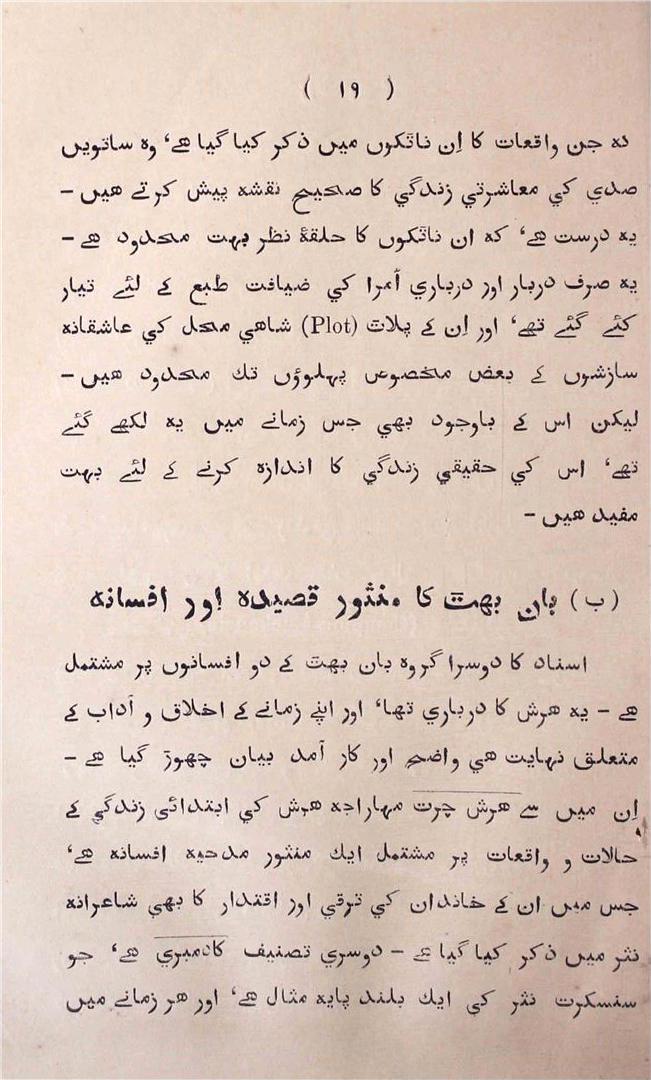 ( ۱۹ )
که جن واقعات کا اِن ناٹکوں میں ذکر کیا گیا ہے، وہ ساتویں
صدی کی معاشرتی زندگی کا صحیح نقشہ پیش کرتے ہیں -
یہ درست ہے، کہ ان ناٹکوں کا حلقۂ نظر بہت محدود ہے -
یہ صرف دربار اور درباری اُمرا کی ضیافت طبع کے لئے تیار
کئے گئے تھے، اور اِن کے پلاٹ (Plot) شاہی محل کی عاشقانہ
سازشوں کے بعض مخصوص پہلوؤں تک محدود ہیں -
لیکن اس کے باوجود بھی جس زمانے میں یہ لکھے گئے
تھے، اس کی حقیقی زندگی کا اندازہ کرنے کے لئے بہت
مفید ہیں -
(ب) بان بھٹ کا منثور قصیدہ اور افسانہ
اسناد کا دوسرا گروہ بان بھٹ کے دو افسانوں پر مشتمل
ہے - یہ ہرش کا درباری تھا، اور اپنے زمانے کے اخلاق و آداب کے
متعلق نہایت ہی واضح اور کار آمد بیان چھوڑ گیا ہے -
اِن میں سے ہرش چرت مہاراجہ ہرش کی ابتدائی زندگی کے
حالات و واقعات پر مشتمل ایک منثور مدحیہ افسانہ ہے،
جس میں ان کے خاندان کی ترقی اور اقتدار کا بھی شاعرانہ
نثر میں ذکر کیا گیا ہے - دوسری تصنیف کادمبری ہے، جو
سنسکرت نثر کی ایک بلند پایہ مثال ہے، اور ہر زمانے میں